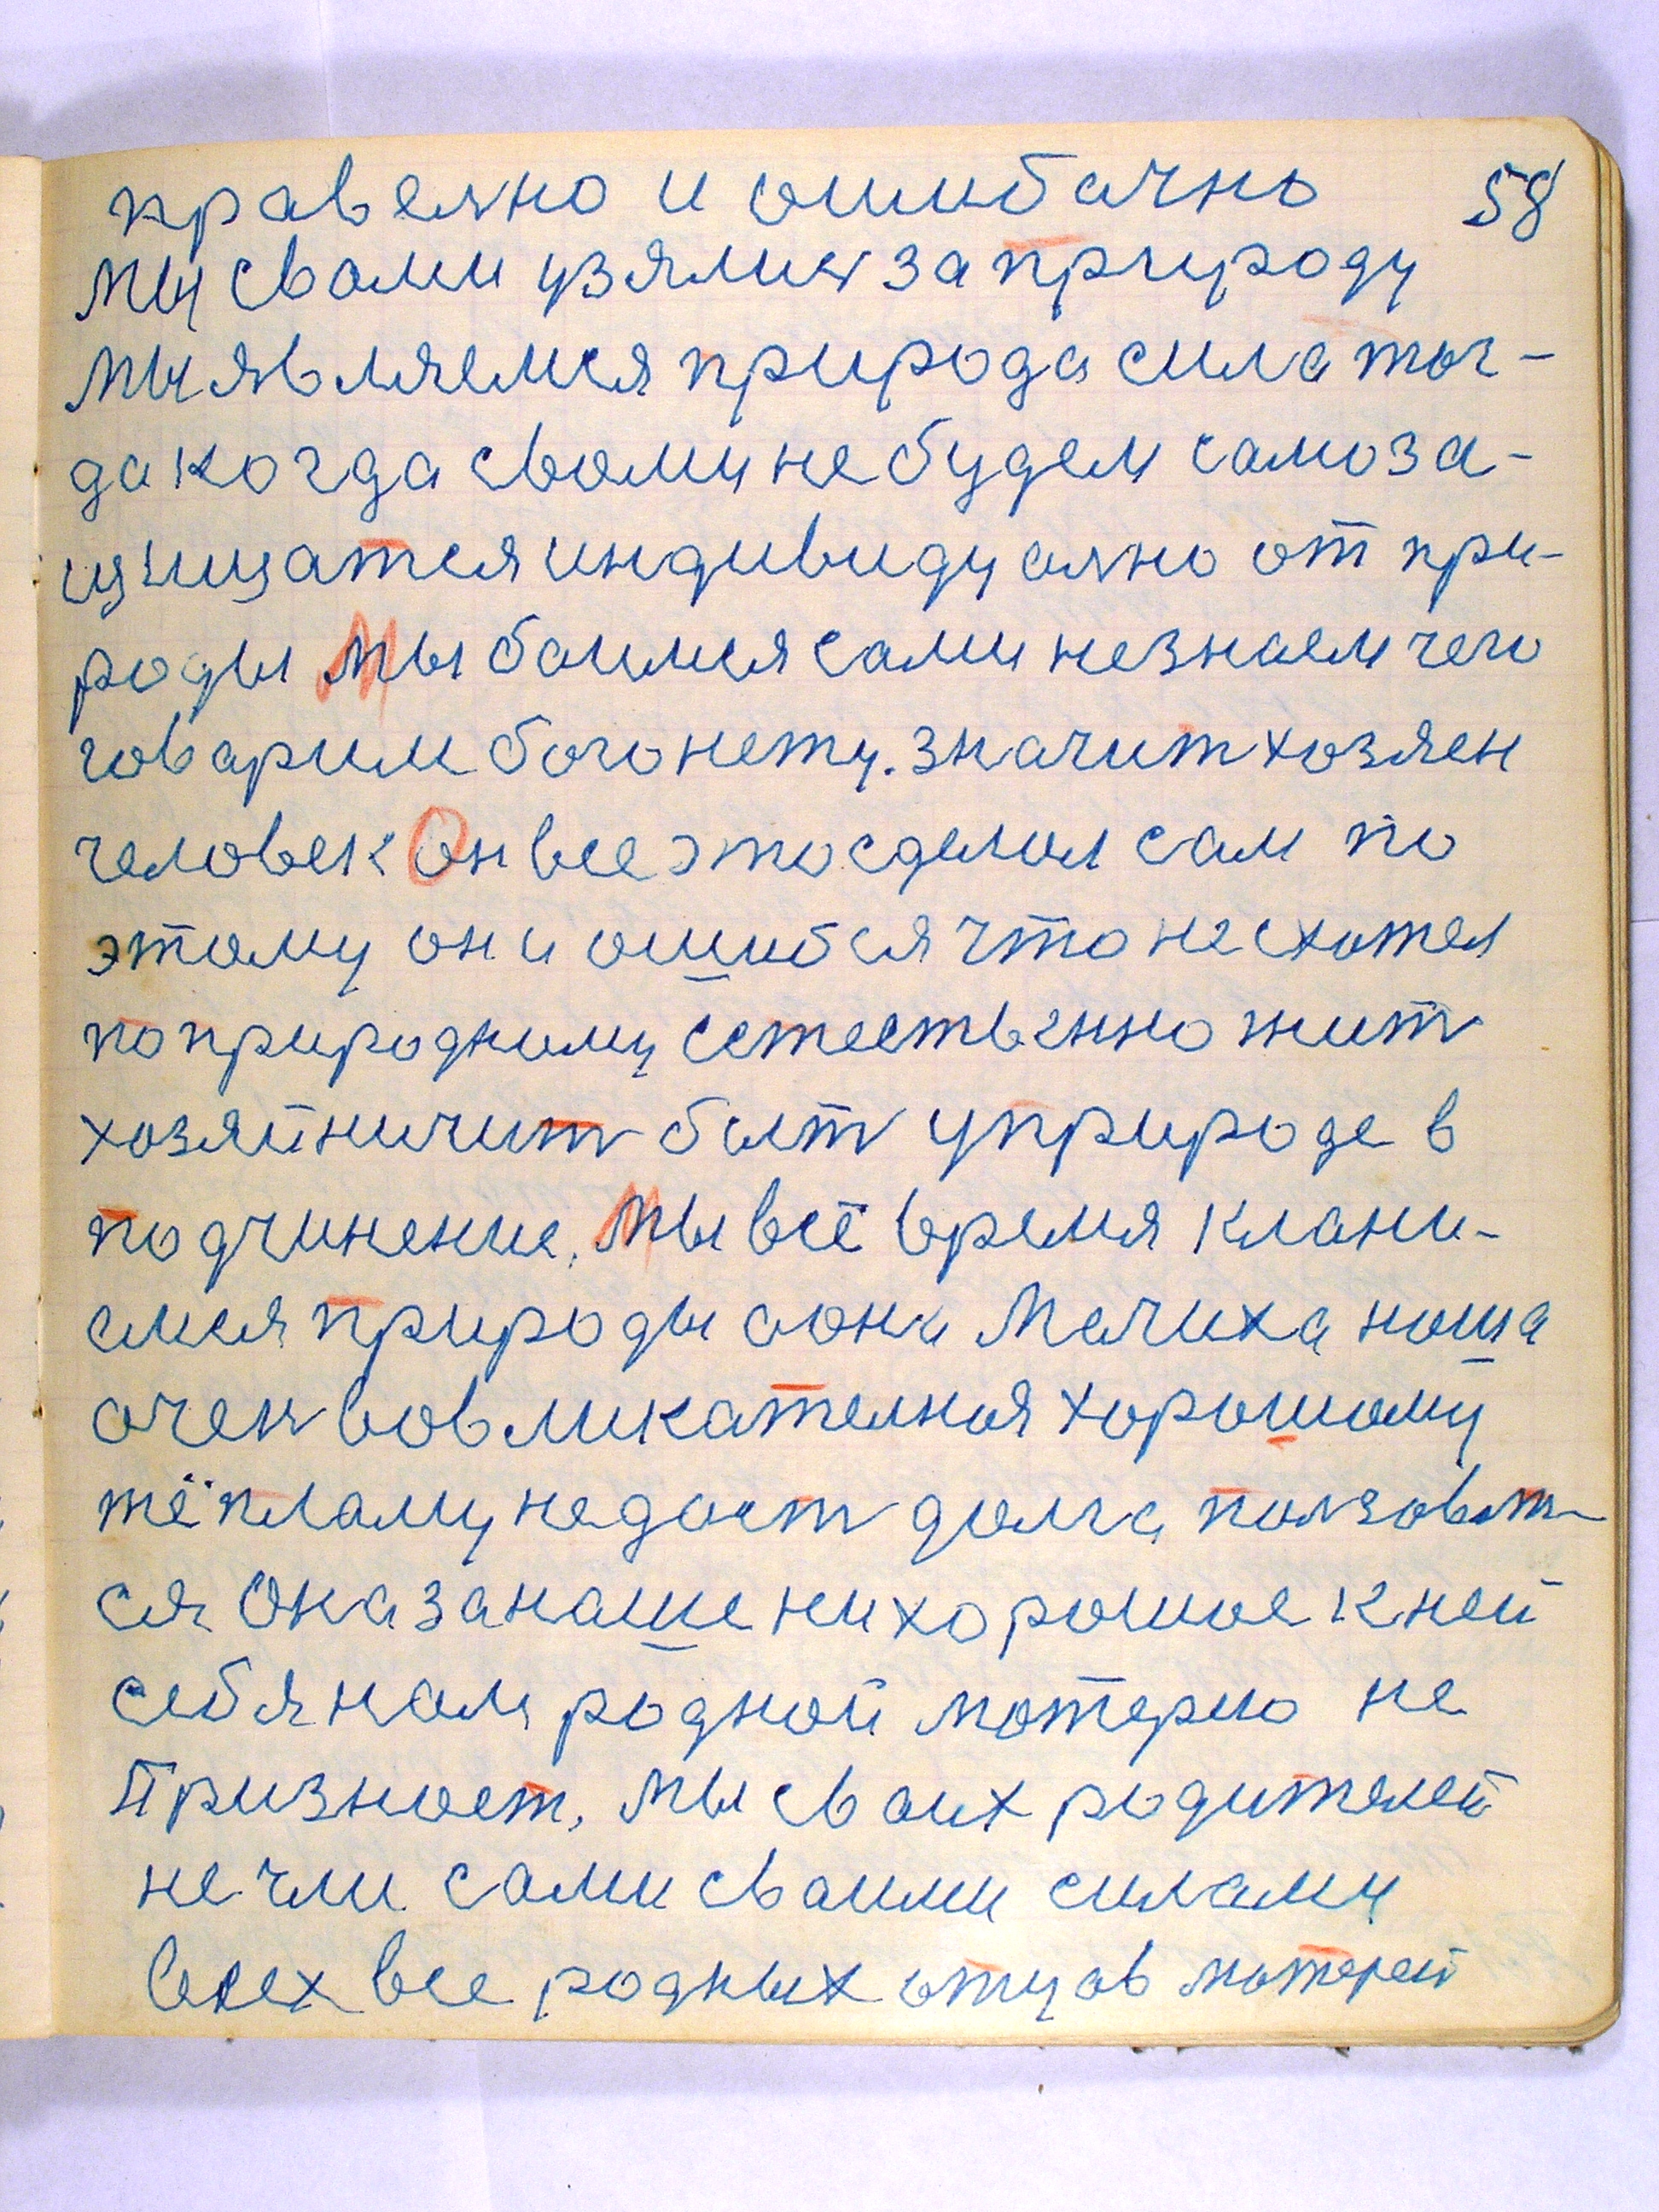 правелно и ошибачно 58
мы свами узялис за природу
мы являемся природа сила тог-
да когда свами не будем самоза-
щищатся индивидуално от при-
роды Мы боимся сами незнаем чего
говарим бога нету. значит хозяен
человек Он все это сделал сам по
этому он и ошибся что не схотел
по природному естественно жит
хозяйничит быт уприроде в
подчинение. Мы всё время клани-
емся природы а она Мачиха наша
очен вовликателная хорошому
тёпламу недаст долга ползоват-
ся Она за наше нихорошое к ней
себя нам родной матерю не
Признает, мы сваих родителей
не чли сами сваими силами
всех все родных отцов матерей